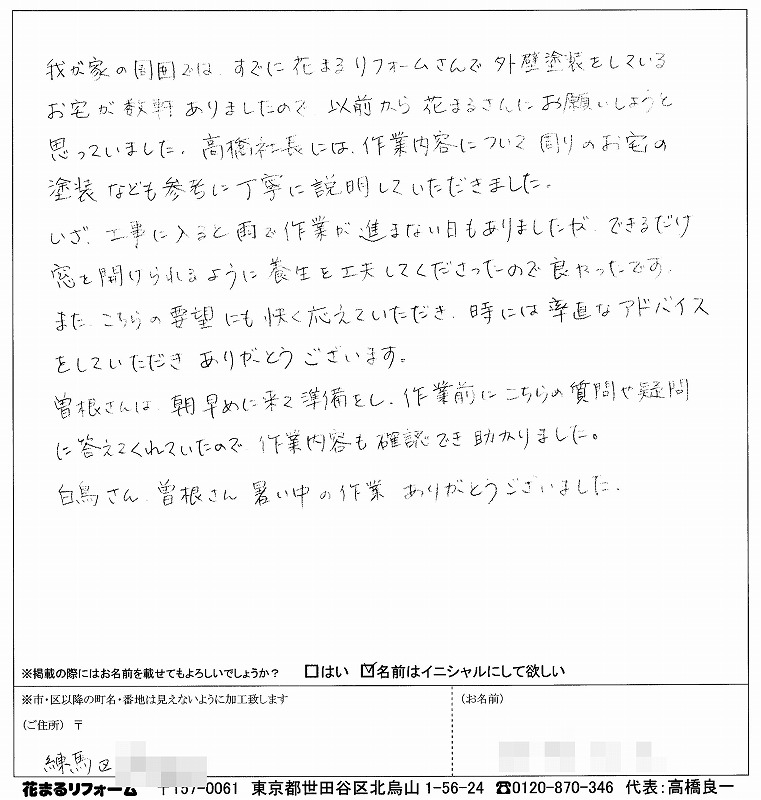 我が家の周囲では、すでに花まるリフォームさんで外壁塗装をしている
お宅が数軒ありましたので、以前から花まるさんにお願いしようと
思っていました。高橋社長には、作業内容について周りのお宅の
塗装なども参考に丁寧に説明していただきました。
いざ、工事に入ると雨で作業が進まない日もありましたが、できるだけ
窓を開けられるように養生を工夫してくださったので良かったです。
また、こちらの要望にも快く応えていただき、時には率直なアドバイス
をしていただきありがとうございます。
曽根さんは、朝早めに来て準備をし、作業前にこちらの質問や疑問
に答えてくれていたので、作業内容も確認でき助かりました。
白鳥さん、曽根さん暑い中の作業 ありがとうございました。
※掲載の際にはお名前を載せてもよろしいでしょうか? □はい ☑名前はイニシャルにして欲しい
※市・区以降の町名・番地は見えないように加工致します
(お名前)
(ご住所) 〒
練馬区
花まるリフォーム 〒157-0061 東京都世田谷区北烏山1-56-24 ☎0120-870-346 代表:高橋良一